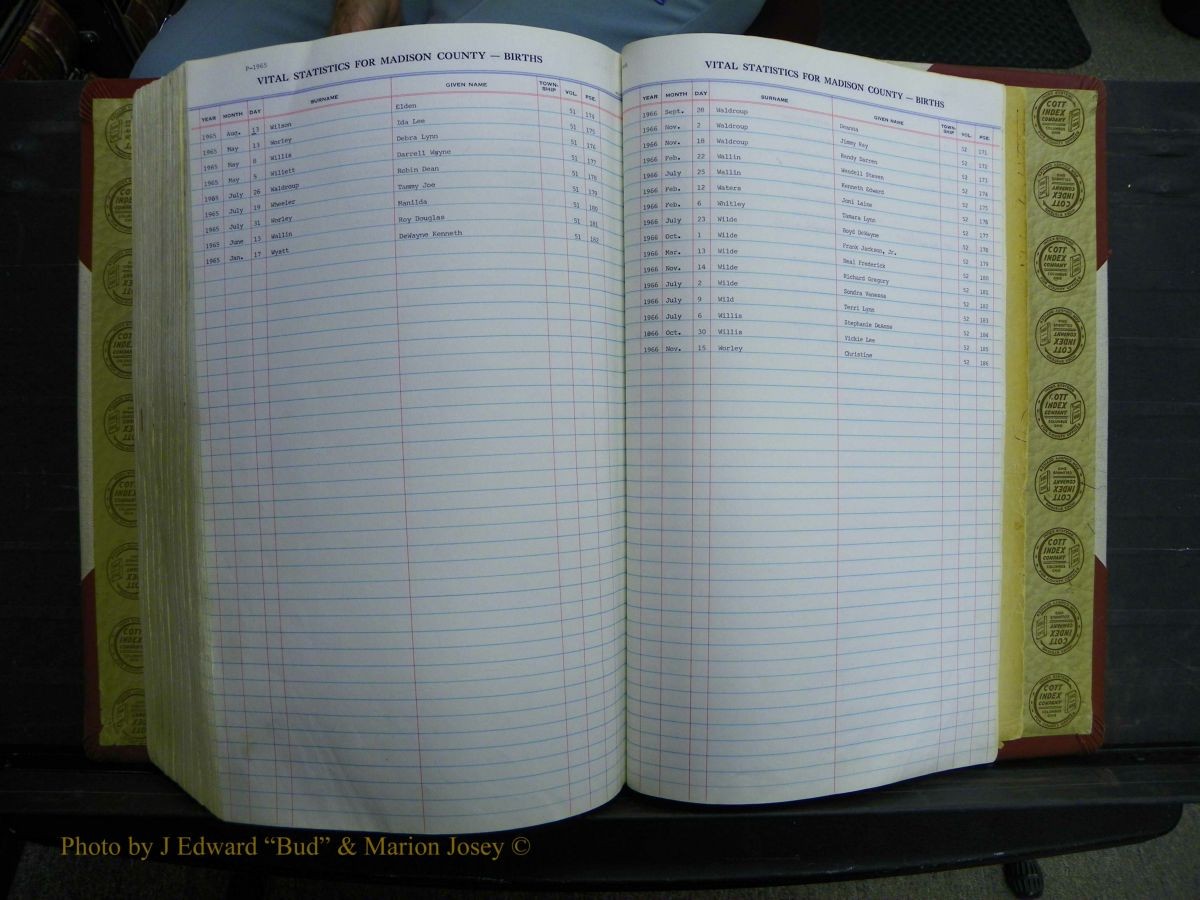 P-1965
VITAL STATISTICS FOR MADISON COUNTY — BIRTHS
YEAR MONTH DAY SURNAME GIVEN NAME TOWN-SHIP VOL. PGE.
1965 Aug. 13 Wilson Elden 51 174
1965 May 13 Worley Ida Lee 51 175
1965 May 8 Willis Debra Lynn 51 176
1965 May 5 Willett Darrell Wayne 51 177
1965 July 26 Waldroup Robin Dean 51 178
1965 July 19 Wheeler Tammy Joe 51 179
1965 July 31 Worley Manilda 51 180
1965 June 15 Wallin Roy Douglas 51 181
1965 Jan. 17 Wyatt DeWayne Kenneth 51 182
VITAL STATISTICS FOR MADISON COUNTY — BIRTHS
YEAR MONTH DAY SURNAME GIVEN NAME TOWN-SHIP VOL. PGE.
1966 Sept. 28 Waldroup Deanna 52 171
1966 Nov. 2 Waldroup Jimmy Ray 52 172
1966 Nov. 18 Waldroup Randy Darren 52 173
1966 Feb. 22 Wallin Wendell Steven 52 174
1966 July 25 Wallin Kenneth Edward 52 175
1966 Feb. 12 Waters Joni Laine 52 176
1966 Feb. 6 Whitley Tamara Lynn 52 177
1966 July 23 Wilde Boyd DeWayne 52 178
1966 Oct. 1 Wilde Frank Jackson, Jr. 52 179
1966 Mar. 13 Wilde Neal Frederick 52 180
1966 Nov. 14 Wilde Richard Gregory 52 181
1966 July 2 Wilde Sondra Vanessa 52 182
1966 July 9 Wild Terri Lynn 52 183
1966 July 6 Willis Stephanie DeAnne 52 184
1966 Oct. 30 Willis Vickie Lee 52 185
1966 Nov. 15 Worley Christine 52 186
COTT INDEX COMPANY COLUMBUS OHIO
Photo by J Edward “Bud” & Marion Josey ©